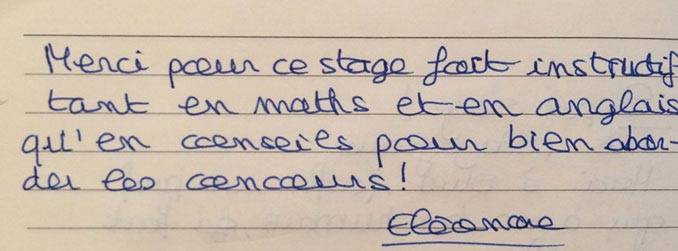 Merci pour ce stage fort instructif
tant en maths et en anglais
qu'en conseils pour bien abor-
der les concours !
Eléonore